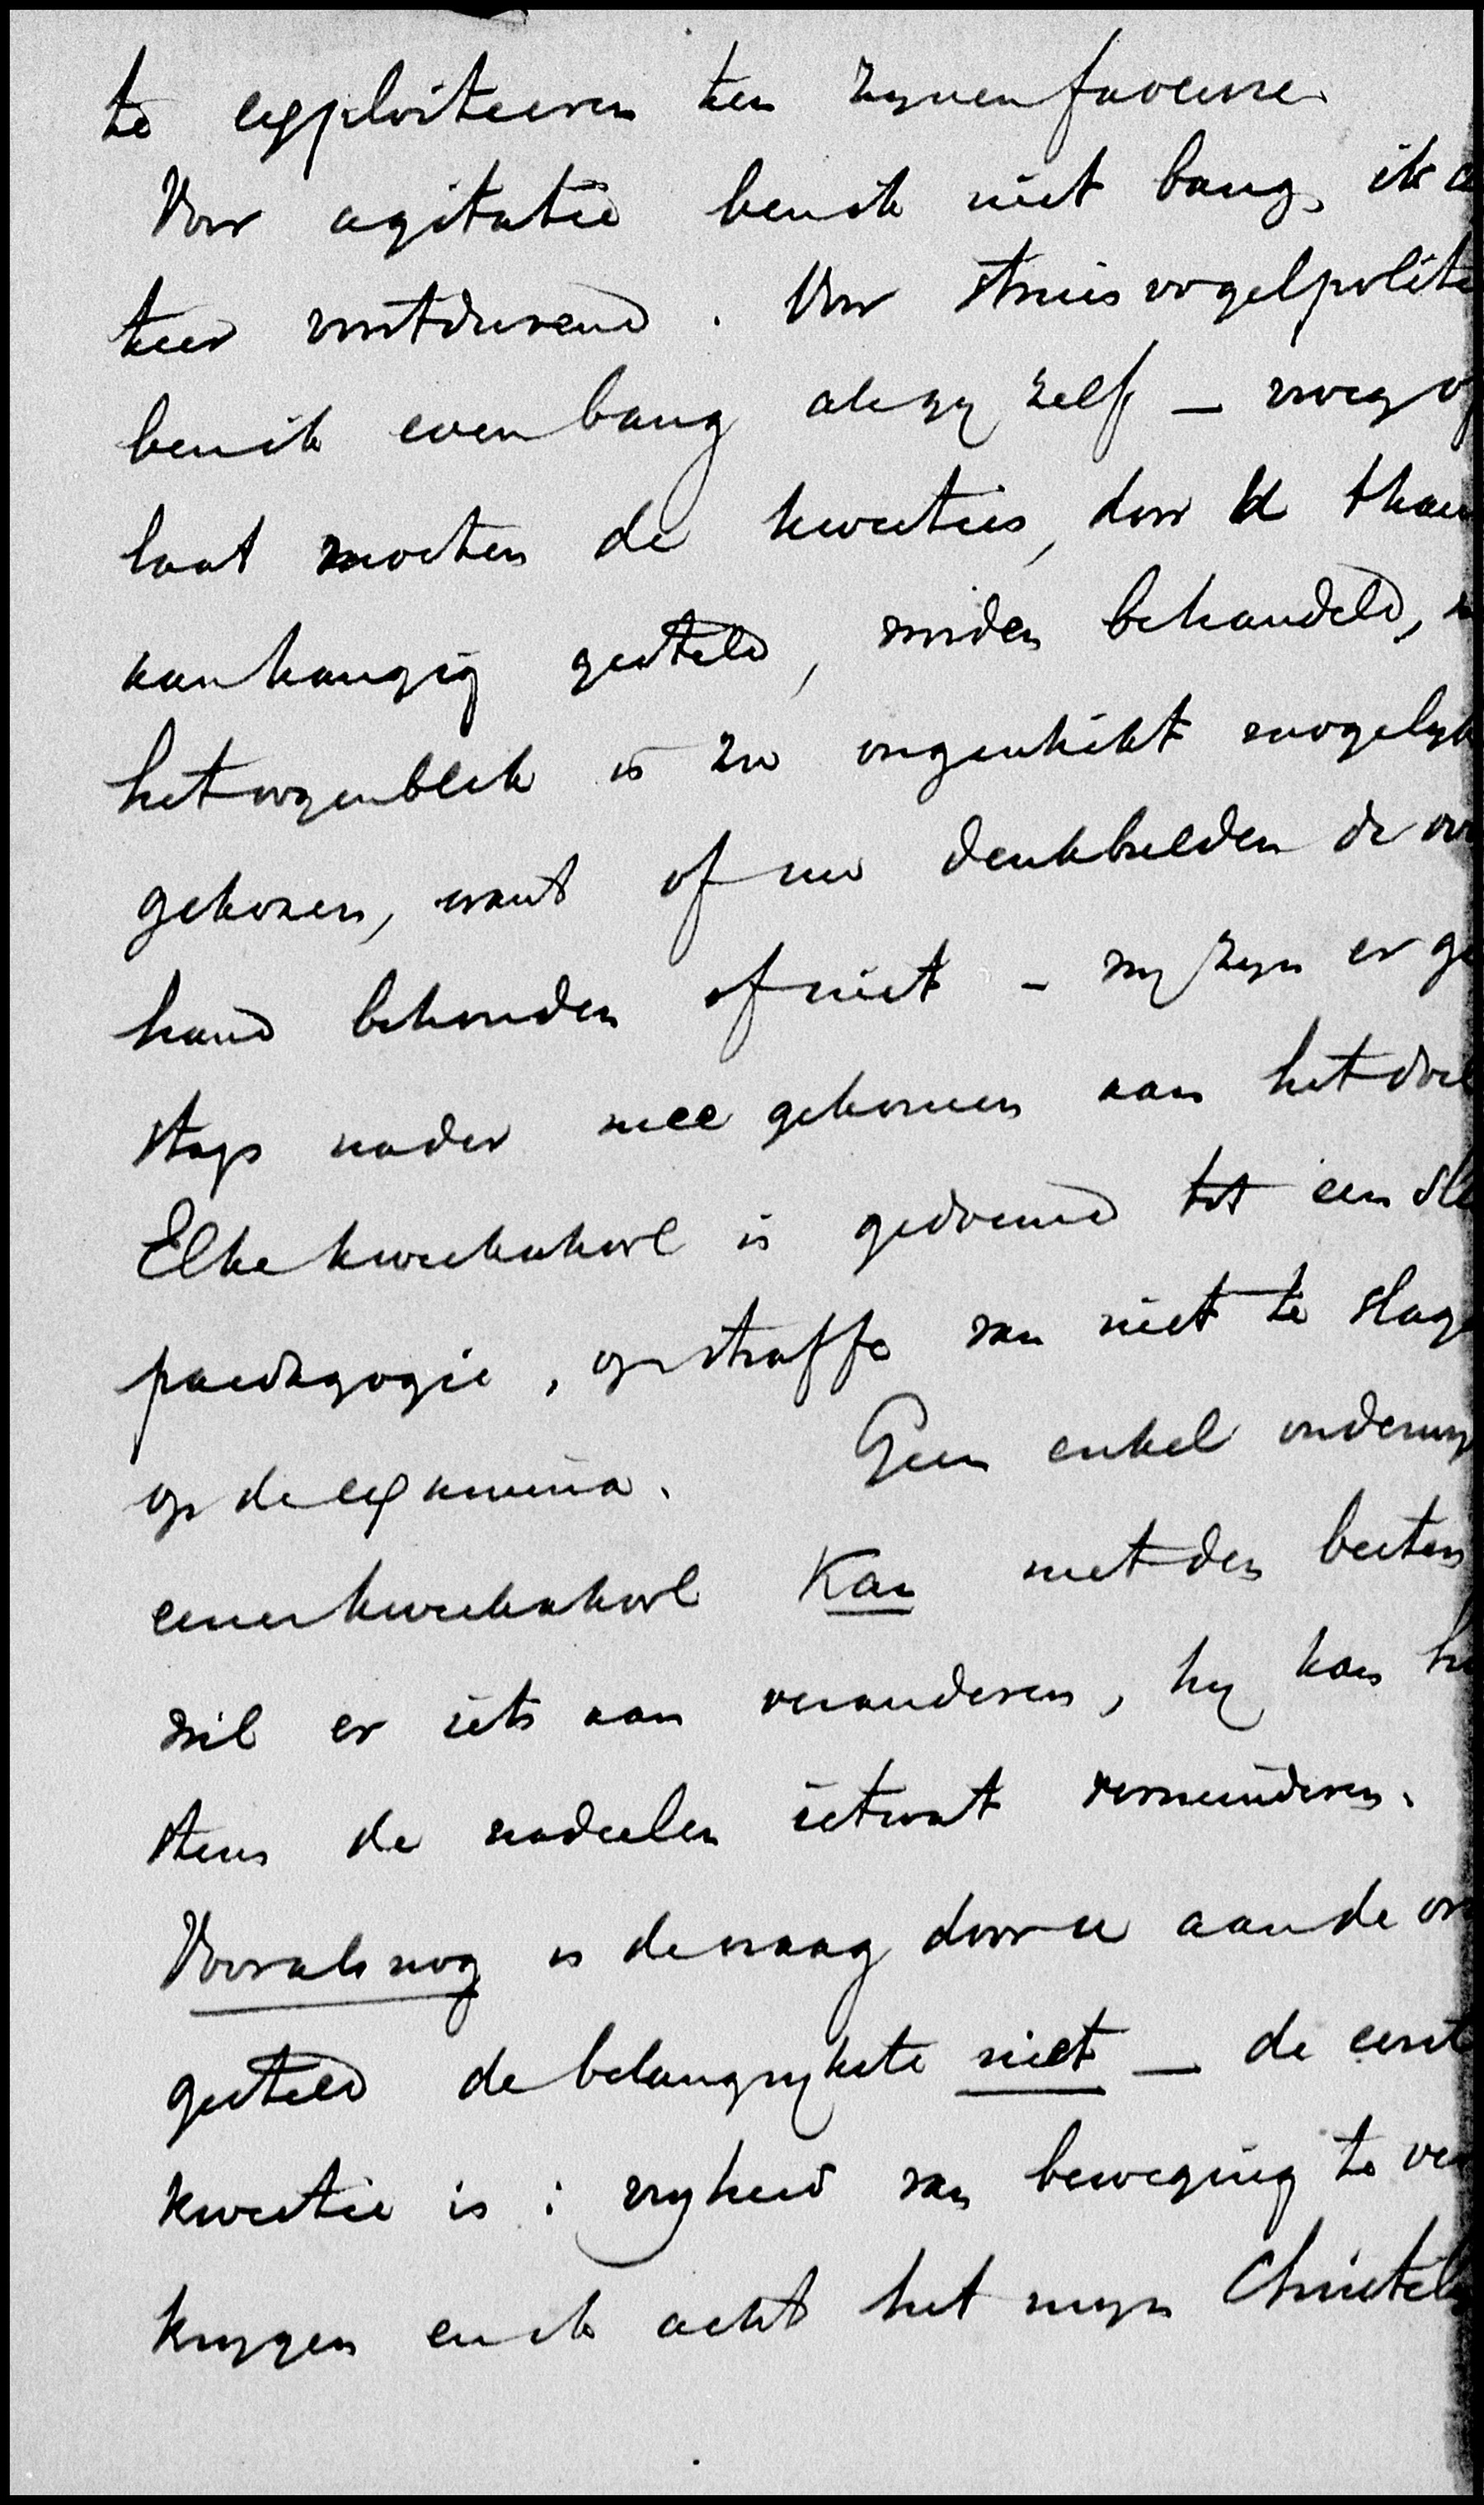 te exploiteeren ten zijnen faveure.
Voor agitatie ben ik niet bang, ik a
teer voortdurend. Voor struisvogelpolite
ben ik even bang als gy zelf — vroeg of
laat moeten de kwesties, door U thans
aanhangig gesteld, worden behandeld,
het oogenblik is zoo ongeschikt mogelyk
gekozen, want of uw denkbeelden de ov
hand behouden of niet — wy zyn er ge
staps nader mee gekomen aan het doel
Elke kweekschool is gedoemd tot een sle
paedagogie, op straffe van niet te slag
op de examina. Geen enkel onderwy
eener kweekschool kan met den besten
wil er iets aan veranderen, hy kan ho
stens de nadeelen ietwat verminderen.
Vooralsnog is de vraag door u aan de or
gesteld de belangrykste niet — de eerste
kwestie is: vryheid van beweging te ver
krygen en ik acht het myn Christel